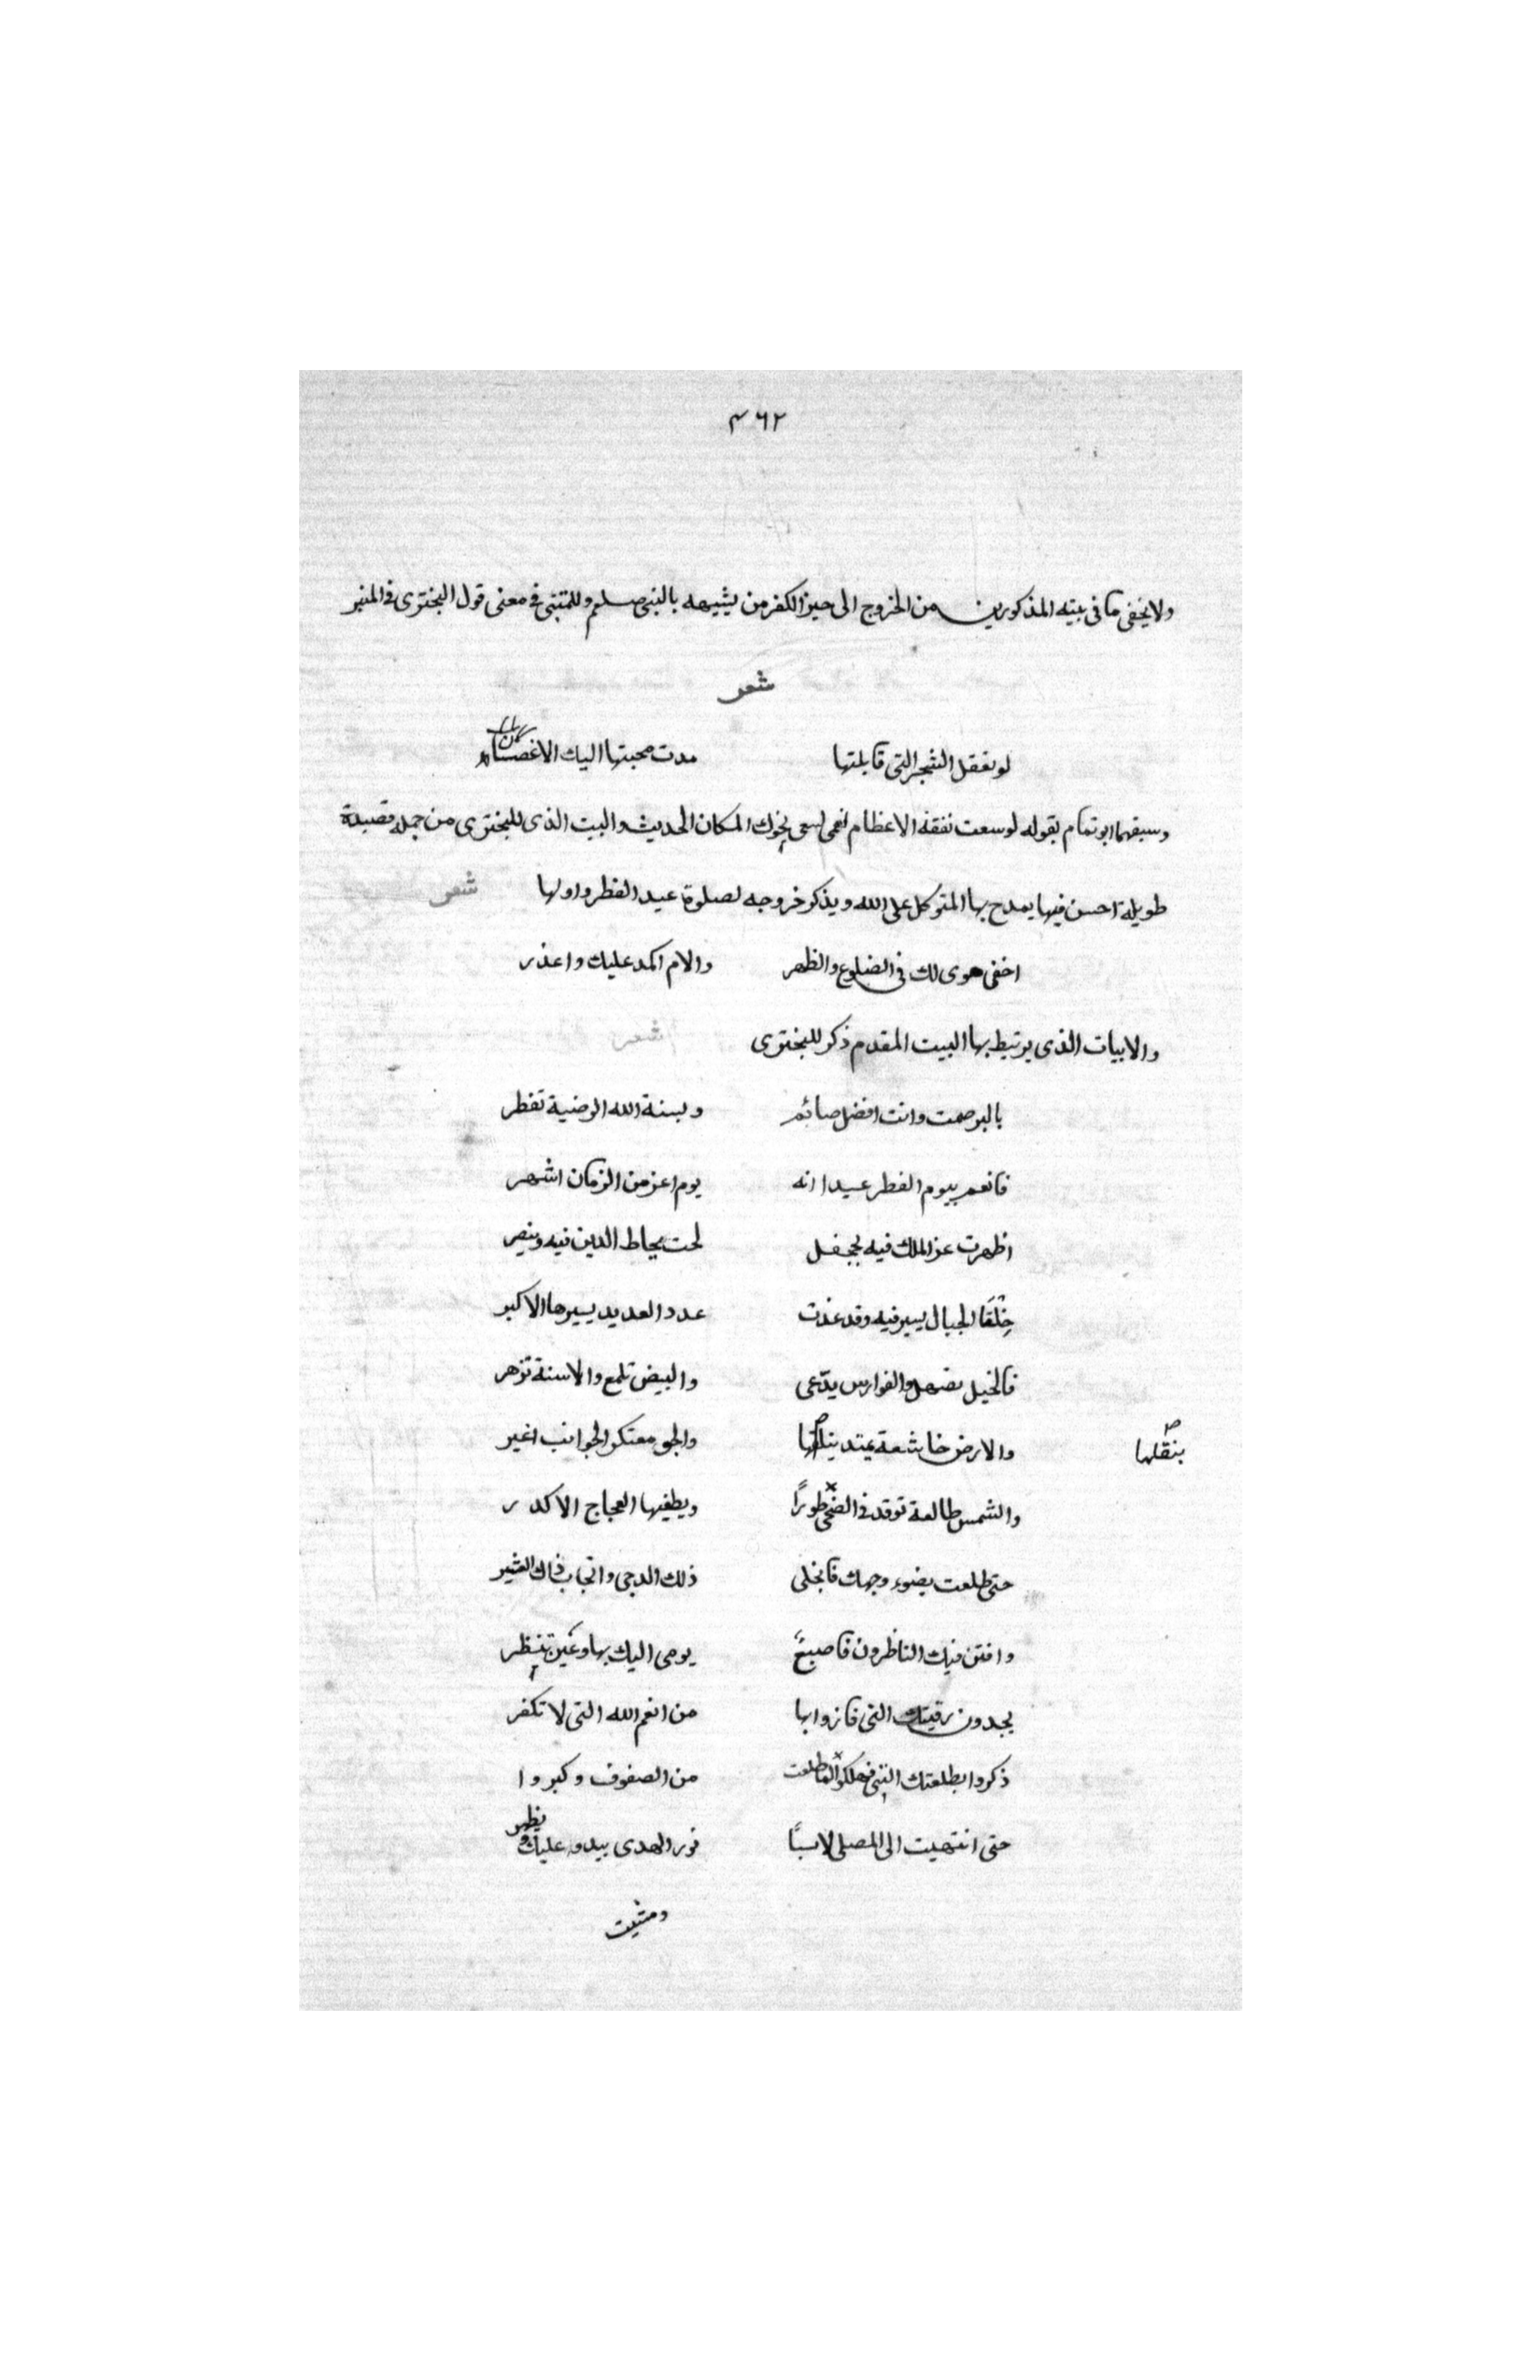 ٣٦٢
ولا يخفى ما في بيته المذكورين من الخروج الى حيز الكفر من يشبهه بالنبي صلعم وللمتنبي في معنى قول البختري في المنبر
شعر
لو تعقل الشجر التي قابلتها مدت محبتها اليك الاغصنا
وسبقهما ابو تمام بقوله لو سعت نفقة الاعظام نعمى لسعى نحوك المكان الحديث والبيت الذي للبختري من جملة قصيدة
طويلة احسن فيها يمدح بها المتوكل على الله ويذكر خروجه لصلوة عيد الفطر واولها شعر
اخفى هوى لك في الضلوع والظهر والام اكمد عليك واعذر
والابيات الذي يرتبط بها البيت المقدم ذكر للبختري شعر
بالبر صمت وانت افضل صائم وبسنة الله الرضية تفطر
فانعم بيوم الفطر عيدا انه يوم اعز من الزمان اشهر
اظهرت عز الملك فيه بجحفل لحت يحاط الدين فيه وينصر
خِلْقَا الجبال يسير فيه وقد غدت عدد العديد يسيرها الاكبر
فالخيل تصهل والفوارس يدّعى والبيض تلمع والاسنة تزهر
والارض خاشعة يمتد والجو معتكر الجوانب اغبر
بنقلها
والشمس طالعة توقد في الضحى طورًا ويطفيها العجاج الاكدر
حتى طلعت بضوء وجهك فانجلى ذلك الدجى وانجاب ذاك العثير
وافتن فيك الناظرون فاصبعٌ يومى اليك بها وعين تنظر
يجدون رقيتك التي فازوا بها من انعم الله التي لا تكفر
ذكروا بطلعتك النبي فهللوا لما طلعت من الصفوف وكبروا
حتى انتهيت الى المصلى لابسًا نور الهدى يبدو عليك ويظهر
ومشيت